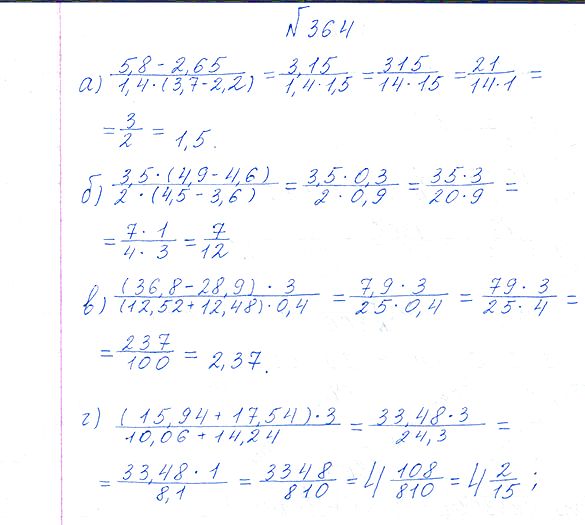 №364
а) (5,8 - 2,65)/(1,4 · (3,7 - 2,2)) = 3,15/(1,4 · 1,5) = 315/(14 · 15) = 21/(14 · 1) =
= 3/2 = 1,5.
б) (3,5 · (4,9 - 4,6))/(2 · (4,5 - 3,6)) = (3,5 · 0,3)/(2 · 0,9) = (35 · 3)/(20 · 9) =
= (7 · 1)/(4 · 3) = 7/12
в) ((36,8 - 28,9) · 3)/((12,52 + 12,48) · 0,4) = (7,9 · 3)/(25 · 0,4) = (79 · 3)/(25 · 4) =
= 237/100 = 2,37.
г) ((15,94 + 17,54) · 3)/(10,06 + 14,24) = (33,48 · 3)/24,3 =
= (33,48 · 1)/8,1 = 3348/810 = 4 108/810 = 4 2/15;